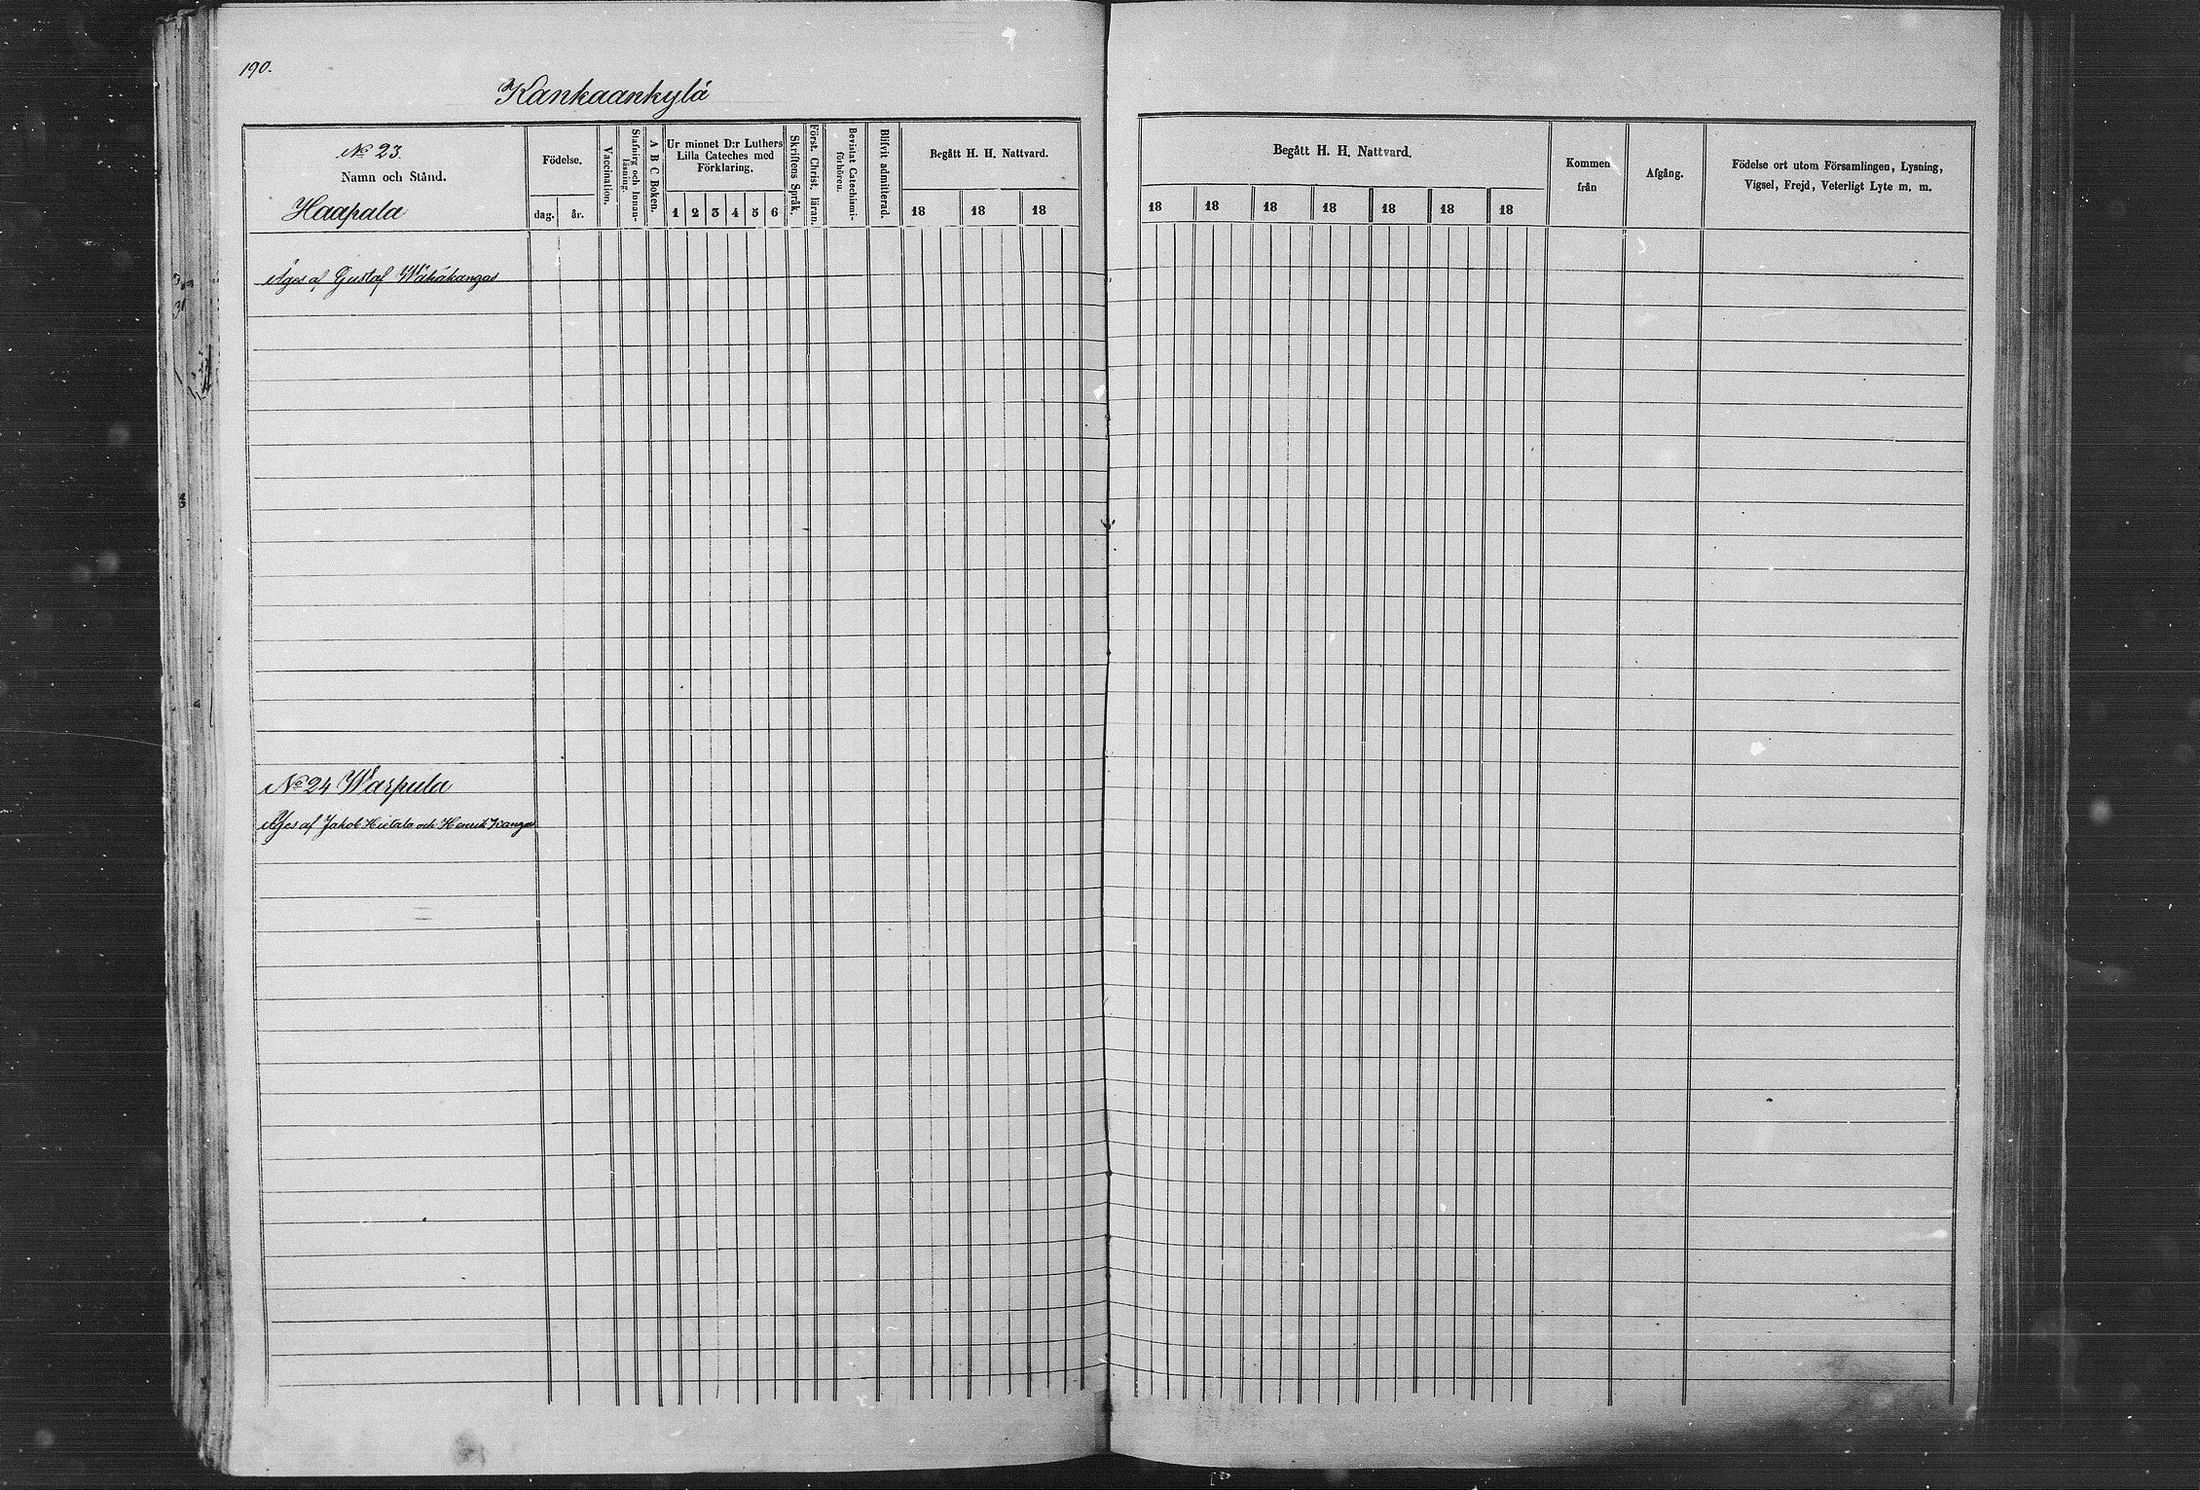 190.
Kankaankylä
№ 23.
Namn och Stånd.
Haapala
Födelse.
dag.
år.
Vaccination.
Stafning och Innan-
läsning.
A B C Boken.
Ur minnet D:r Luthers
Lilla Cateches med
Förklaring.
1 2 3 4 5 6
Skriftens Språk.
Först. Christ. läran.
Bevistat Catechismi-
förhören.
Blifvit admitterad.
Begått H. H. Nattvard.
18 18 18
Äges af Gustaf Wähäkangas
№ 24 Warpula
Äges af Jakob Hietala och Henrik Kangas
Begått H. H. Nattvard.
18 18 18 18 18 18 18
Kommen
från
Afgång.
Födelse ort utom Församlingen, Lysning,
Vigsel, Frejd, Veterligt Lyte m. m.